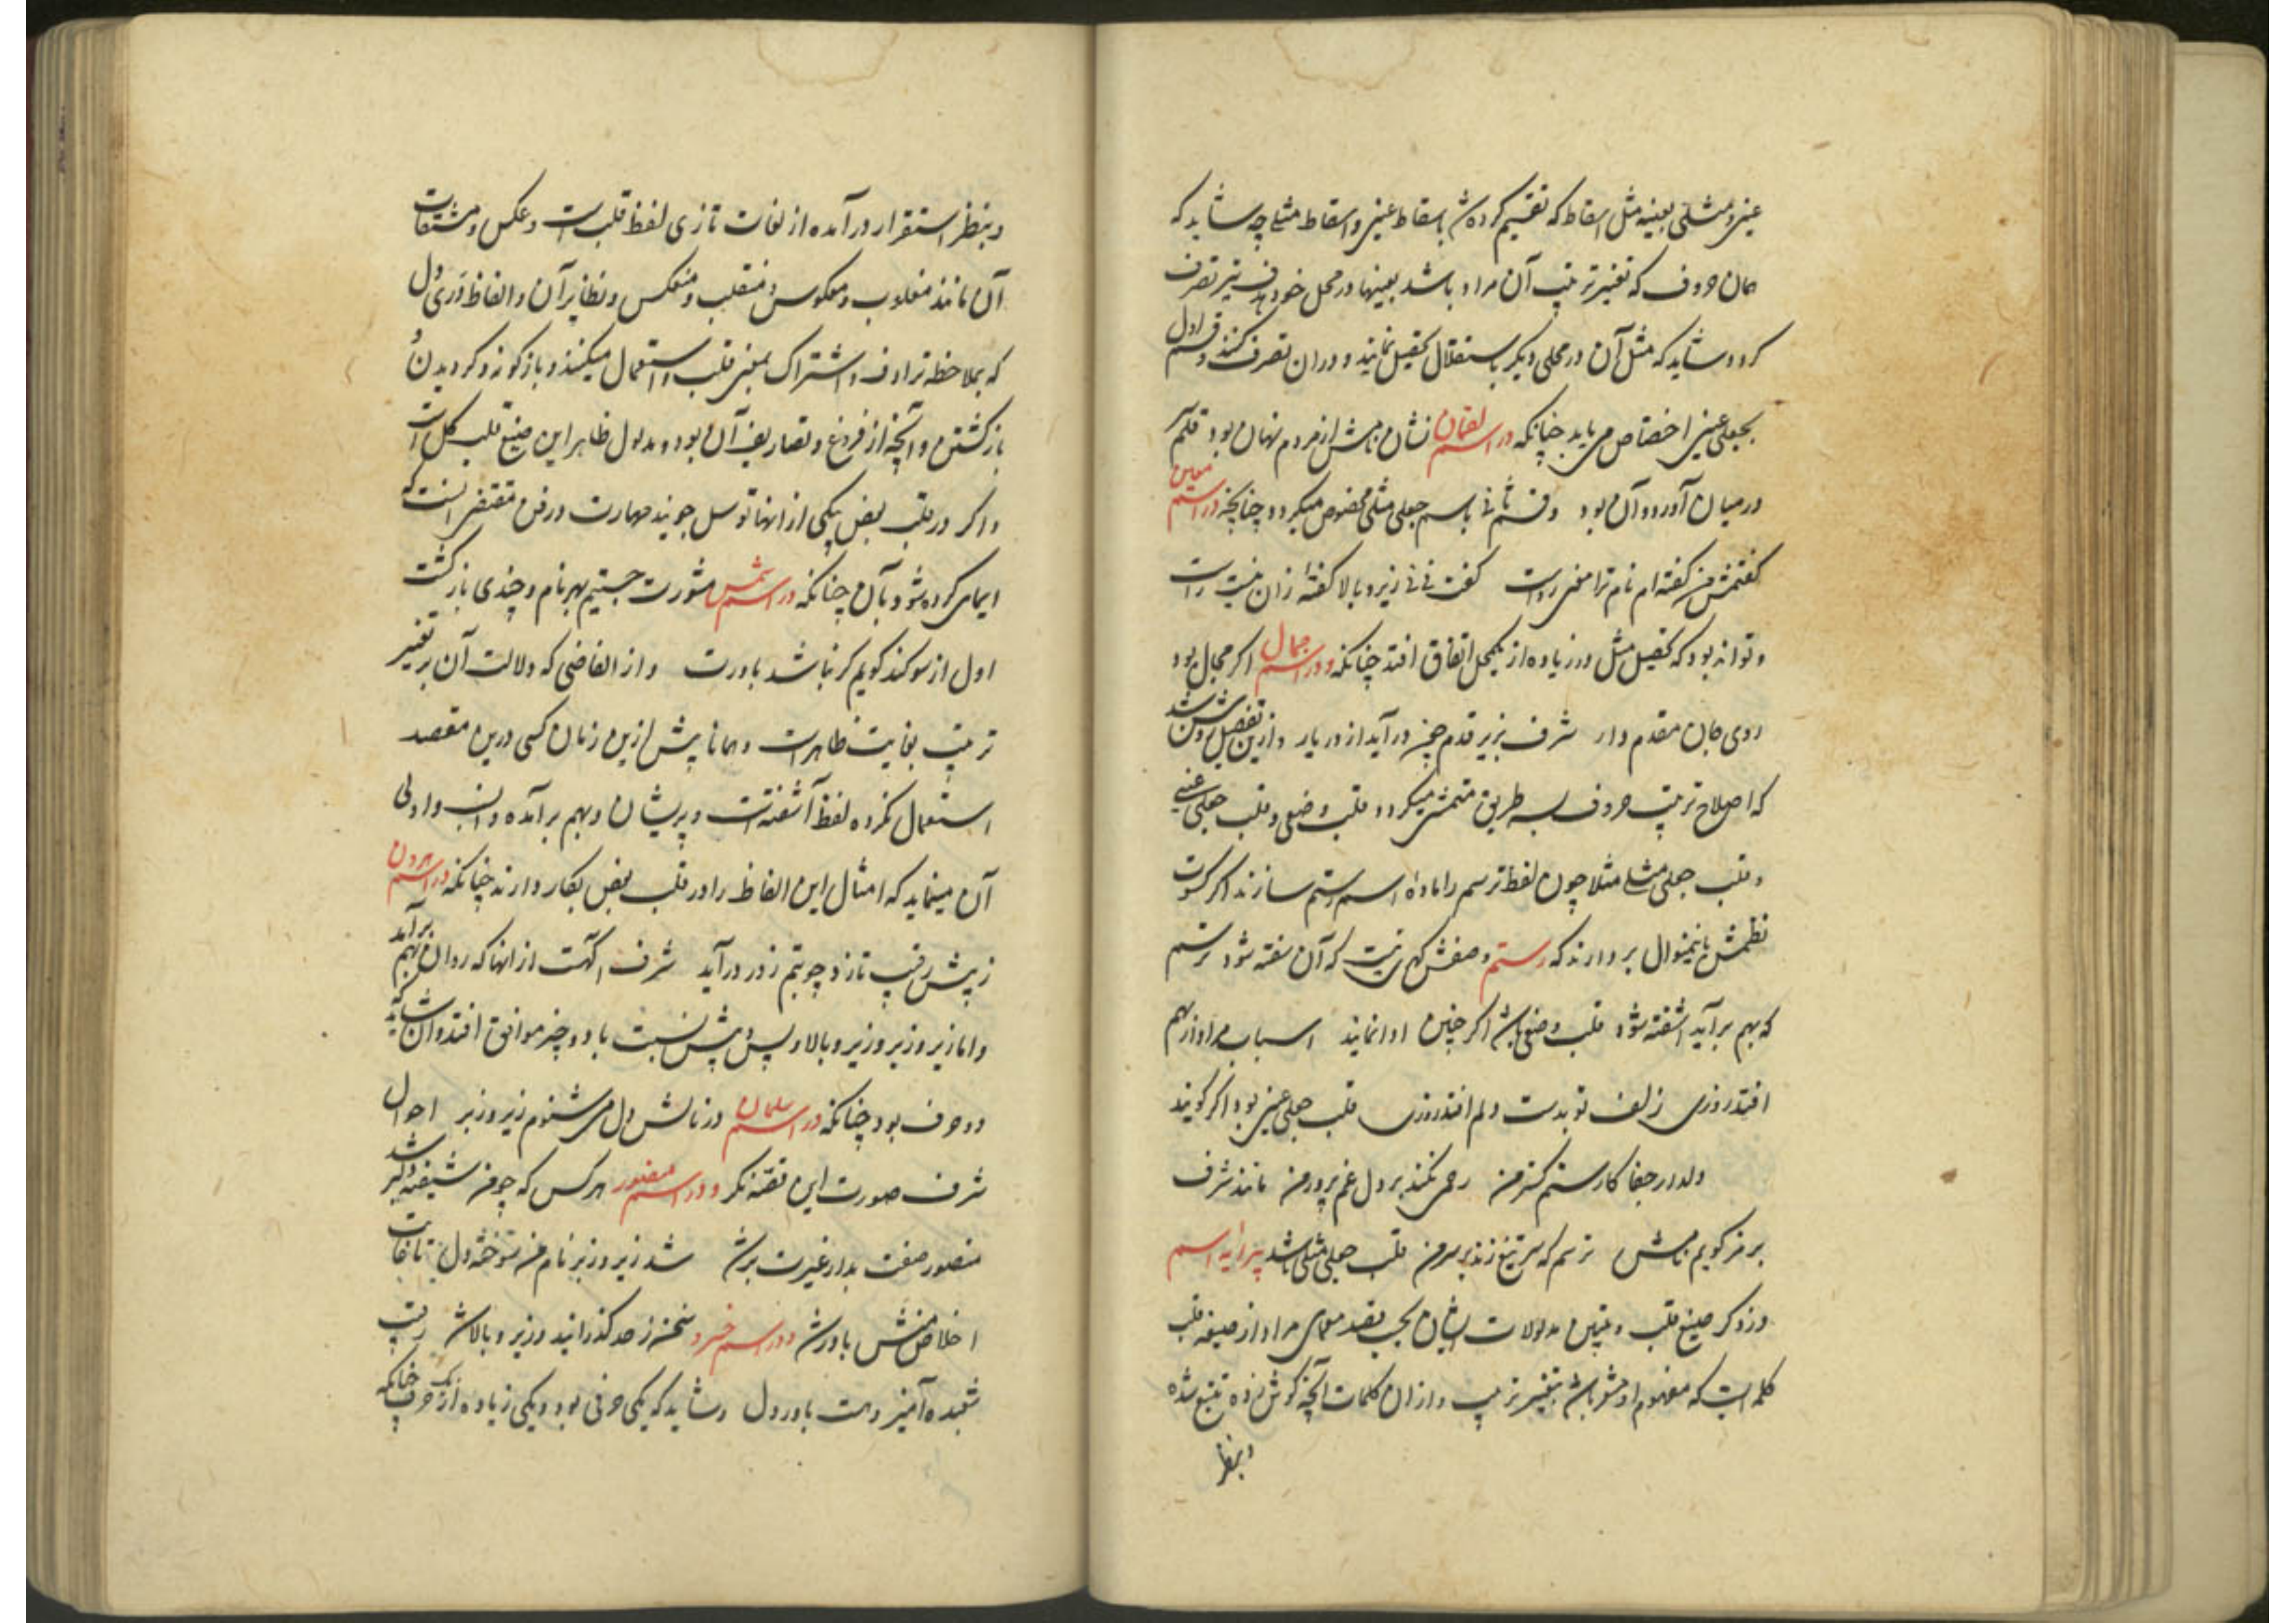 عینی و مثلی بعینه مثل اسقاط که تقسیم کرده شد باسقاط عینی و اسقاط مثلی چه شاید که
همان حروف که تغییر ترتیب آن مراد باشد بعینها در محل خود بدین تصرف
کرد و شاید که مثل آن در محلی دیگر باستقلال تحصیل نمایند و در آن تصرف کنند و قسم اول
بجعلی عینی اختصاص می یابد چنانکه در اسم لقمان نشان مهش از مردم نهان بود قلم
در میان آورد و آن بود وقسم ثانی باسم جعلی مثلی مخصوص میگردد چنانچه در اسم
گفتمش من گفته ام نام ترا معنی رواست گفت نی نی زیر و بالا گفته از آن نیست راست
و تواند بود که تحصیل مثل در زیاده از یکمحل اتفاق افتد چنانکه در اسم جمال اگر مجال بود
روی جان مقدم دار شرف بزیر قدم چون در آید از در یار و ازین تفصیل روشن شد
که اصلاح ترتیب حروف بسه طریق متمشی میگردد قلب وضعی و قلب جعلی عینی
و قلب جعلی مثلی مثلا چون لفظ ترسم را ماده اسم رستم سازند اگر کسوت
نظمش باینمنوال بردارند که رستم وصفش گهریست که آن سفته شود ترسم
که بهم برآید اشفته شود قلب وضعی باشد اگر چنین ادا نمایند اسباب مرا از هم
افتد روزی زلف تو بدست دلم افتد روزی قلب جعلی عینی بود اگر گویند
دلدار جفا کار ستم گستر من رحمی نکند بر دل غم پرور من مانند شرف
برمز گویم نامش ترسم که سر تیغ زند بر سر من قلب جعلی مثلی باشد پیرایه اسم
در ذکر صیغ قلب و تبیین مدلولات ایشان بحسب قصد معمای مراد از صیغه قلب
کلمه ایست که مفهوم او مشعر باشد بتغییر ترتیب و از آن کلمات آنچه گوش زده تتبع شده
و بنظر
و بنظر استقرار در آمده از لغات تازی لفظ قلب است و عکس و مشتقات
آن مانند مقلوب و معکوس و منقلب و منعکس و نظایر آن و الفاظ دری دل
که بملاحظه ترادف و اشتراک بمعنی قلب استعمال میکنند و باز گونه و گردیدن و
بازگشتن و آنچه از فروع و تصاریف آن بود و مدلول ظاهر این صیغ قلب کل است
و اگر در قلب بعض بیکی از انها توسل جویند مهارت در فن مقتضی آنست که
ایمای کرده شود بآن چنانکه در اسم شمس مشورت جستیم بهر نام و چندی بازگشت
اول از سوکند گویم گر نباشد باورت و از الفاظی که دلالت آن بر تغییر
ترتیب بغایت ظاهرست و همانا پیش ازین زمان کسی درین مقصد
استعمال نکرده لفظ آشفته است و پریشان و بهم برآمده و انسب و اولی
آن مینماید که امثال این الفاظ را در قلب بعض بکار دارند چنانکه در اسم هرون
ز پیش رقیب تازد چو بتم زود درآید شرف آگهت از انها که روان بهم برآید
و اما زیر و زبر و زیر و بالا و پس و پیش نسبت با دو چیز موافق افتد و آن شاید که
دو حرف بود چنانکه در اسم سلمان در نالش دل می شنوم زیر و زبر احوال
شرف صورت این قصّه نگر و در اسم منصور هر کس که چو من شیفته دلبر شد
منصور صفت بدار غیرت بر شد شد زیر و زبر نام من سوخته دل تا قافیت
اخلاص منش باور شد و در اسم خسرو سخن ز حد گذرانید و زیر و بالا شد رقیب
شعبده آمیز دست یاور دل و شاید که یکی حرفی بود و یکی زیاده از یک حرف چنانکه